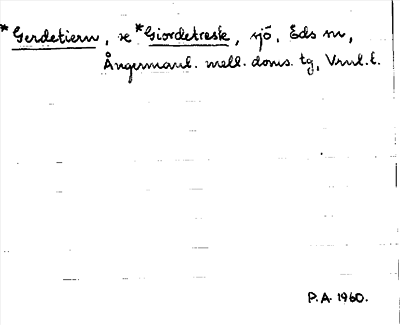 *Gerdetiern, se *Giordetresk, sjö, Eds sn,
Ångermanl. mell. doms. tg, Vrnl. l.
P.A. 1960.